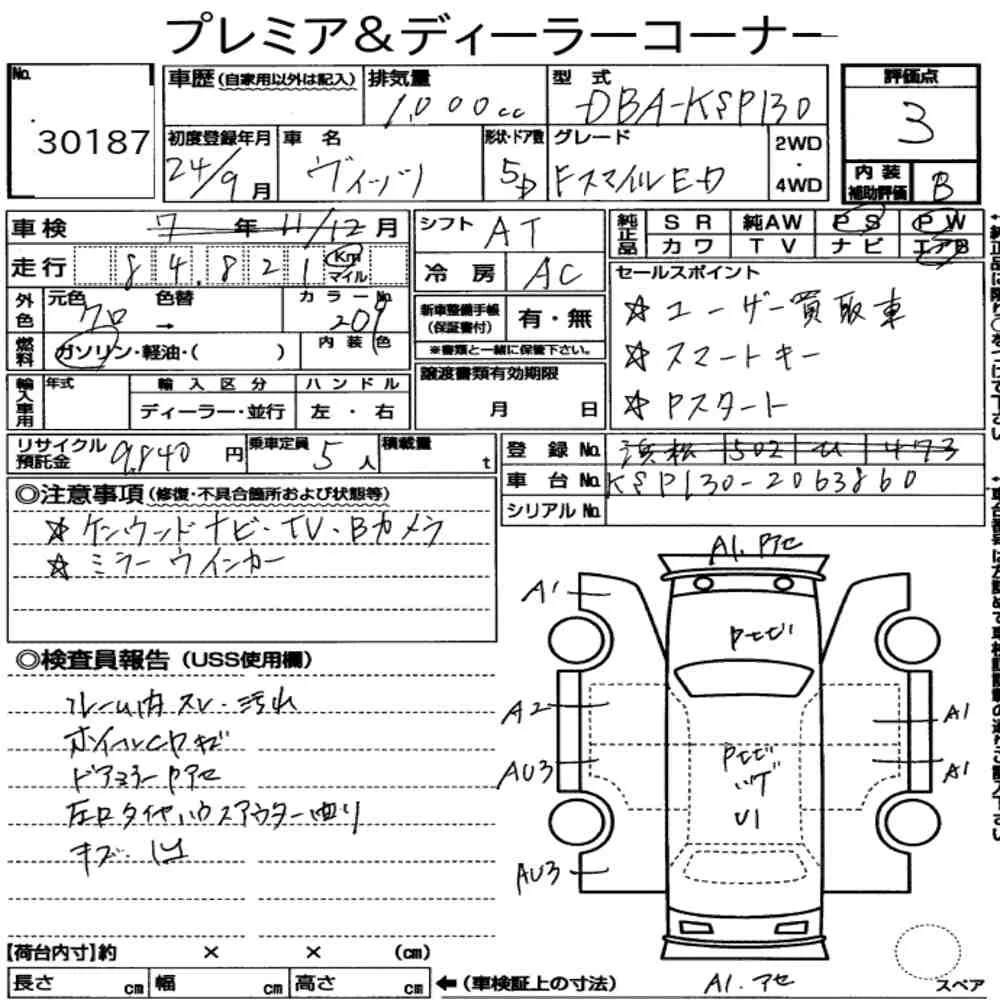 プレミア&ディーラーコーナー
No. 30187
車歴(自家用以外は記入)
排気量 1,000cc
型式 DBA-KSP130
評価点 3
内装補助評価 B
初度登録年月 24/9月
車名 ヴィッツ
形状・ドア数 5D
グレード FスマイルED
2WD・4WD
車検 7年11/12月
シフト AT
純正品 SR 純AW PS PW
カワ TV ナビ エアB
走行 84,821 Km マイル
冷房 AC
外色 元色 クロ 色替 → カラーNo. 209
内装色
新車整備手帳(保証書付) 有・無
※書類と一緒に保管下さい。
燃料 ガソリン・軽油・( )
セールスポイント
☆ユーザー買取車
☆スマートキー
☆Pスタート
譲渡書類有効期限 月 日
輸入車用 年式 輸入区分 ハンドル
ディーラー・並行 左・右
リサイクル預託金 9,840円
乗車定員 5人
積載量 t
登録No. 浜松 502 ひ 473
車台No. KSP130-2063860
シリアルNo.
◎注意事項(修復・不具合箇所および状態等)
☆ケンウッドナビ・TV・Bカメラ
☆ミラーウインカー
◎検査員報告(USS使用欄)
フレーム内スレ・汚れ
ホイールCPキズ
ドアミラーPアセ
左Rタイヤハウスアウター曲り
キズ・凹
A1.Pアセ
A1
Pセビ
A2
A1
AU3
Pセビ
ハゲ
U1
A1
AU3
A1.アセ
スペア
【荷台内寸】約 × × (cm)
長さ cm 幅 cm 高さ cm ←(車検証上の寸法)